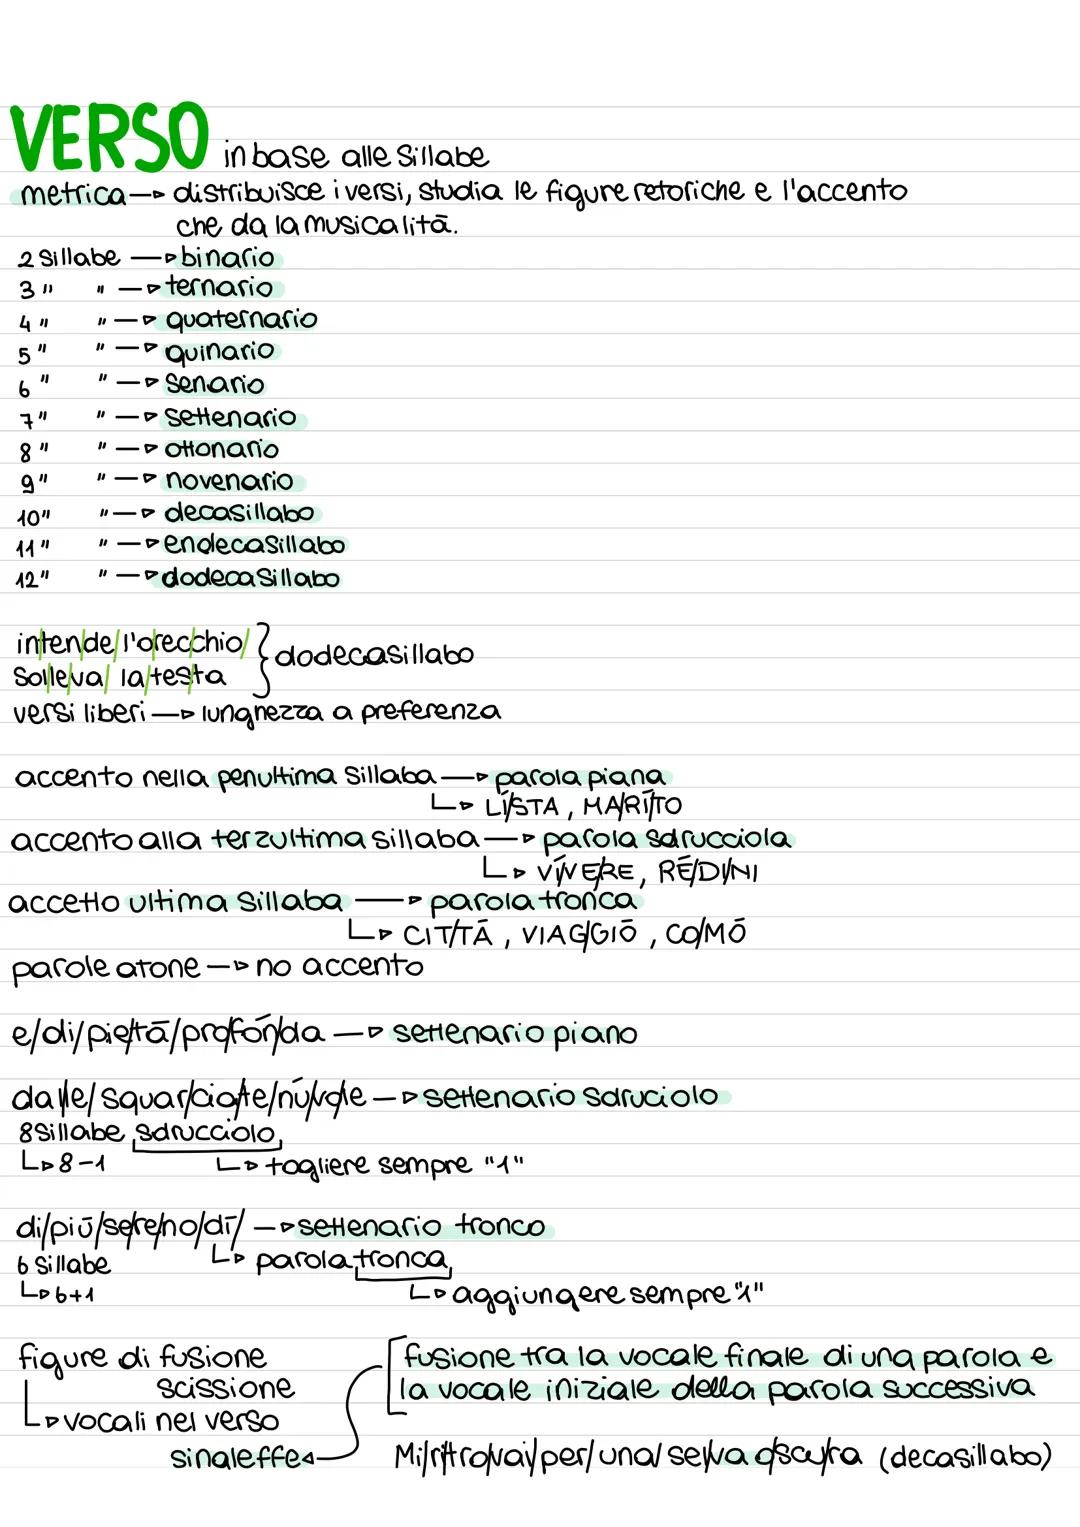 VERSO in base alle sillabe
metrica → distribuisce i versi, studia le figure retoriche e l'accento
che da la musicalitā.
2 sillabe → binario
3 " " → ternario
4 " " → quaternario
5 " " → quinario
6 " " → senario
7 " " → settenario
8 " " → ottonario
9 " " → novenario
10 " " → decasillabo
11 " " → endecasillabo
12 " " → dodecasillabo
in/ten/de/l'o/rec/chio/ } dodecasillabo
Sol/le/va/ la/tes/ta
versi liberi → lunghezza a preferenza
accento nella penultima sillaba → parola piana
↳ LÍ/STA, MA/RÍ/TO
accento alla terzultima sillaba → parola sdrucciola
↳ VÍ/VE/RE, RÉ/DI/NI
accetto ultima sillaba → parola tronca
↳ CIT/TĀ, VIAG/GIŌ, CO/MŌ
parole atone → no accento
e/di/pie/tā/pro/fón/da → settenario piano
dal/le/squar/cia/te/nú/vo/le → settenario sdruciolo
8 sillabe sdrucciolo
↳ 8-1 ↳ togliere sempre "1"
di/piū/se/re/no/dī/ → settenario tronco
6 sillabe ↳ parola tronca
↳ 6+1 ↳ aggiungere sempre "1"
figure di fusione
scissione
↳ vocali nel verso
sinaleffe
fusione tra la vocale finale di una parola e
la vocale iniziale della parola successiva
Mi/ri/tro/vai/per/una/sel/va o/scu/ra (decasillabo)